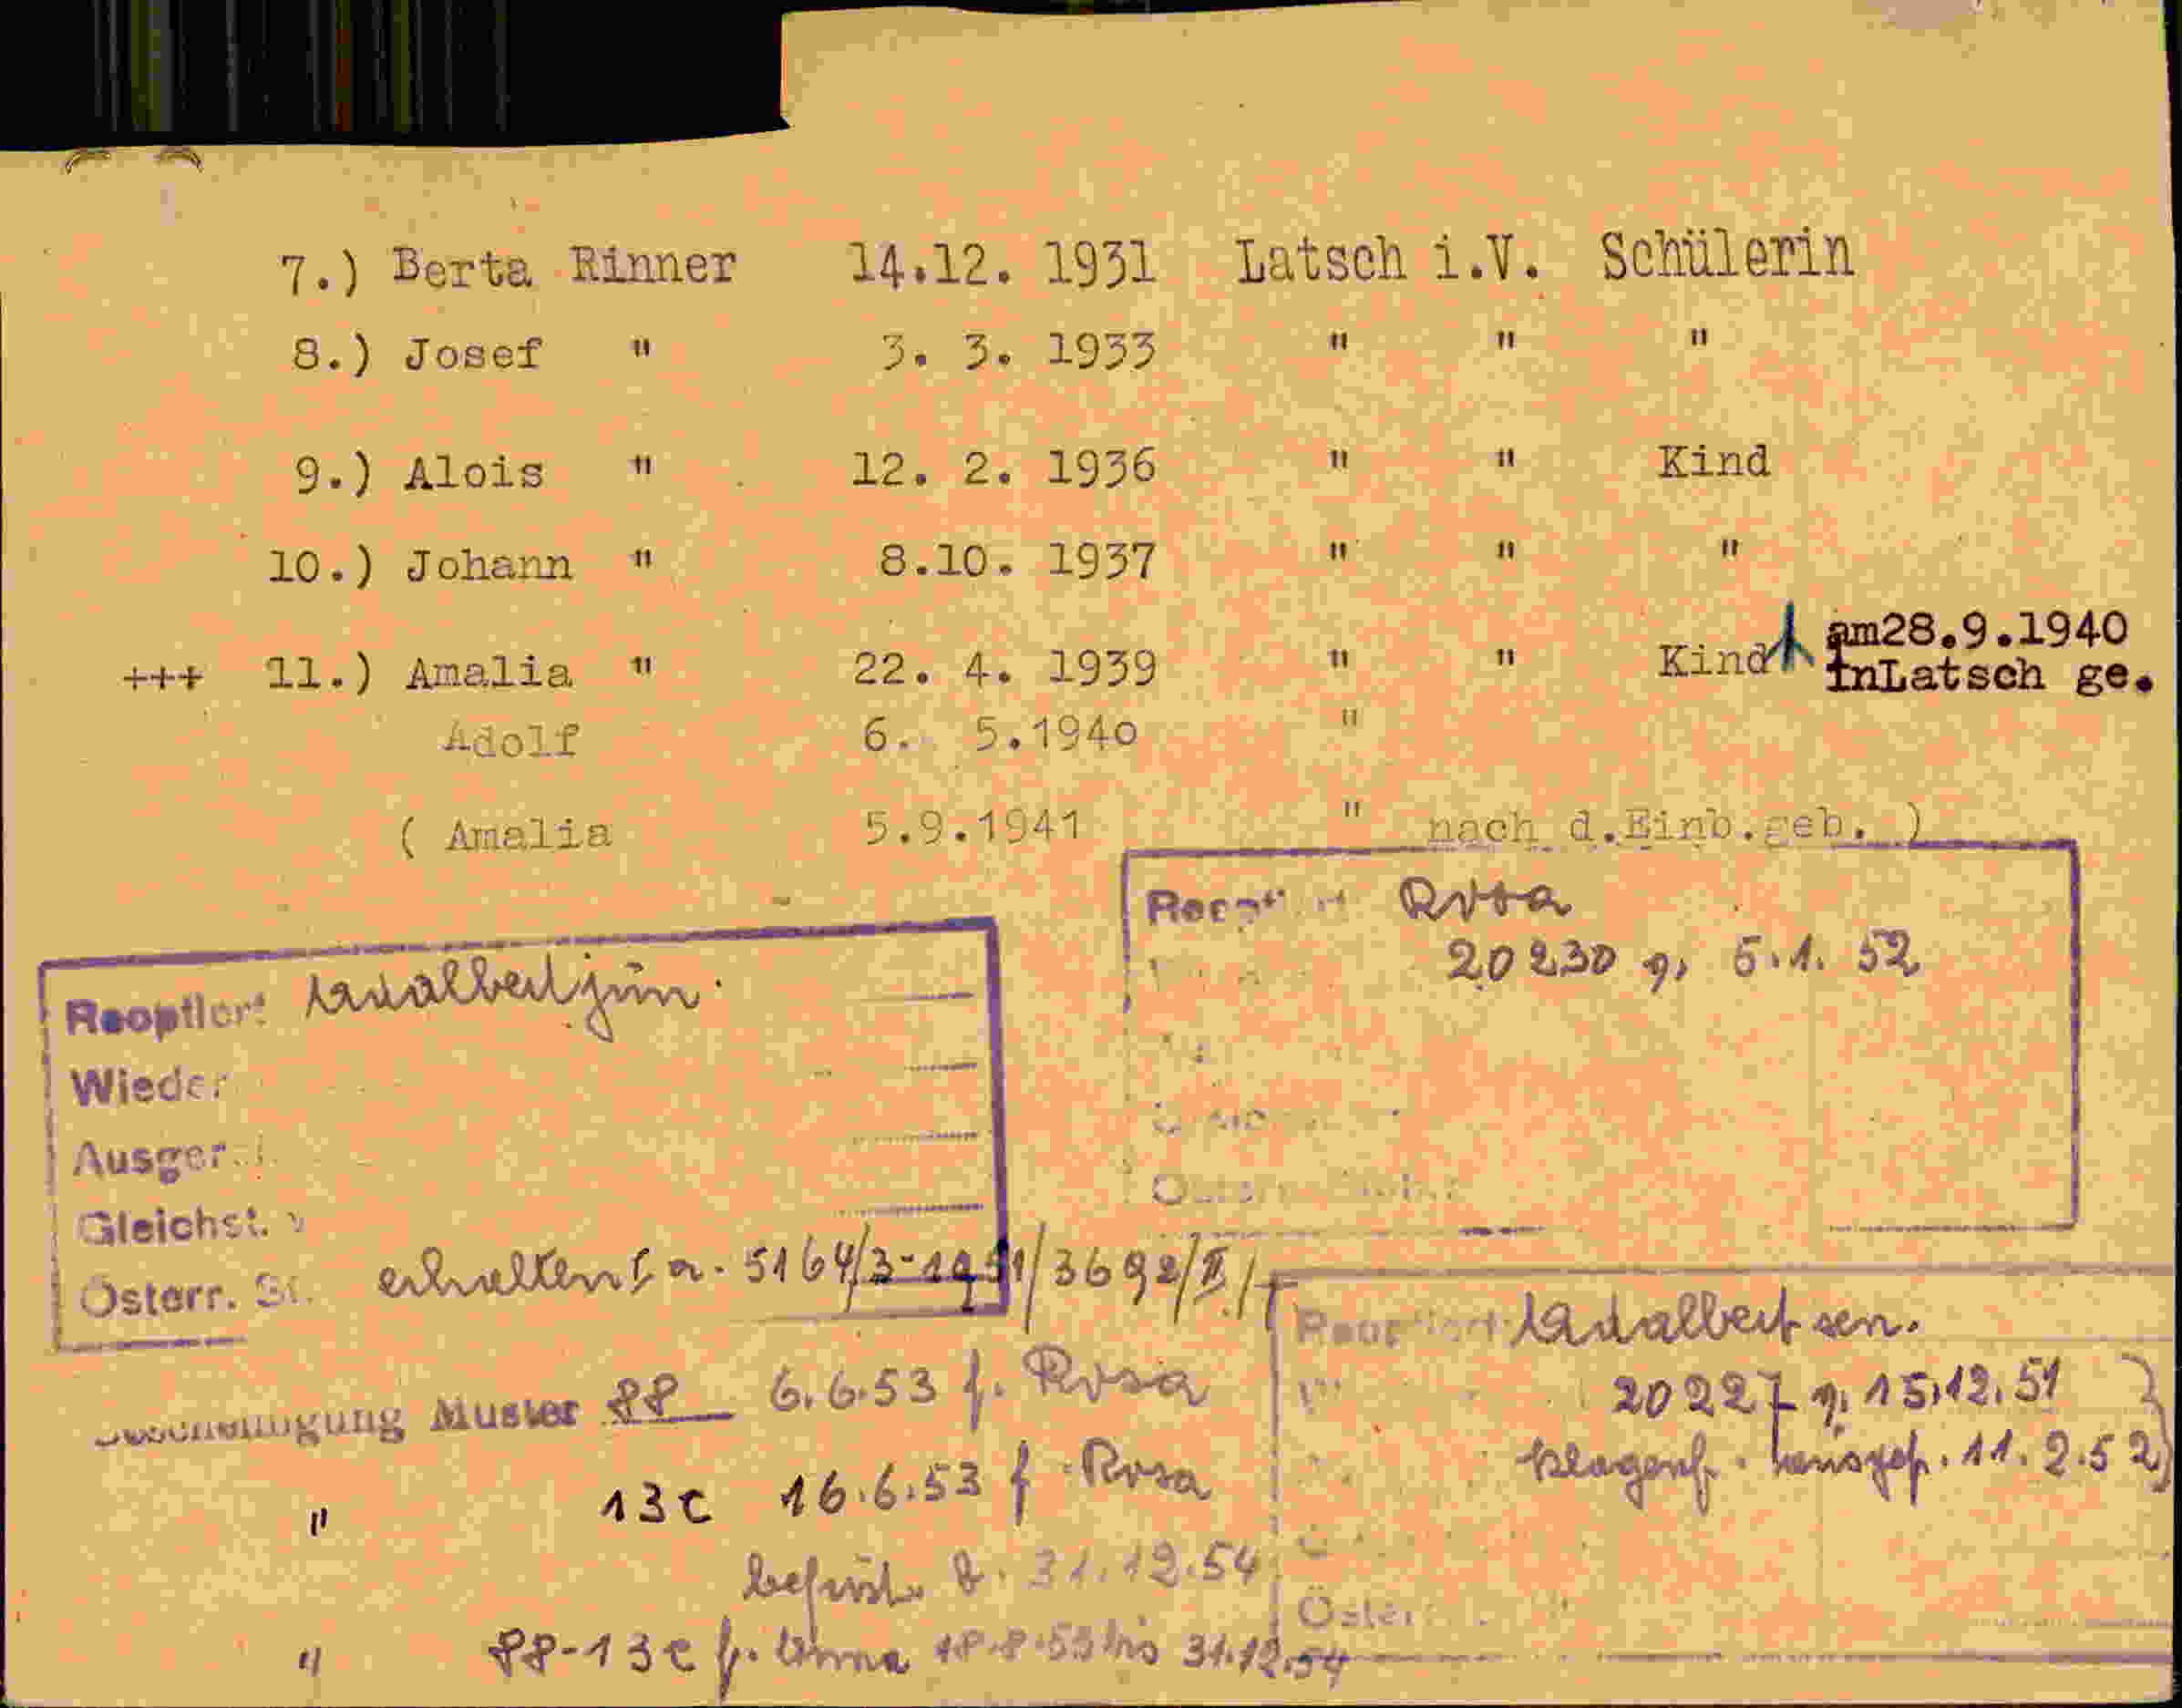 7.) Berta Rinner 14.12. 1931 Latsch i.V. Schülerin
8.) Josef " 3. 3. 1933 " " "
9.) Alois " 12. 2. 1936 " " Kind
10.) Johann " 8.10. 1937 " " "
+++ 11.) Amalia " 22. 4. 1939 " " Kind am28.9.1940
inLatsch ge.
Adolf 6. 5.1940 "
( Amalia 5.9.1941 " nach d.Einb.geb. )
Rosa
20230 5.1. 52
Reoptiert Adalbert jun.
Wieder
Ausger
Gleichst.
Österr. St.
erhalten 5164/3-1951/3692/II/
Muster 88 6.6.53 f. Rosa
" 13c 16.6.53 f. Rosa
befrist. 31.12.54
" 88-13c f. Anna 18.8.53 bis 31.12.54
Adalbert sen.
20227 15.12.51
Klagenf. 11.2.52
Öster